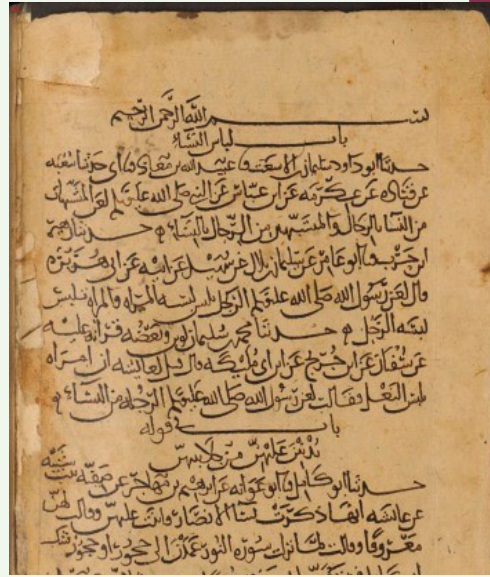 بسم الله الرحمن الرحيم
باب لباس النساء
حدثنا ابو داود سليمن بن الاشعث ثنا عبيد الله بن معاذ ثنا ابي حدثنا شعبه
عن قتاده عن عكرمه عن ابن عباس عن النبي صلى الله عليه وسلم لعن المتشبهات
من النساء بالرجال والمتشبهين من الرجال بالنساء حدثنا زهير
ابن حرب ثنا ابو عامر عن سليمان بن بلال عن سهيل عن ابيه عن ابي هريره
قال لعن رسول الله صلى الله عليه وسلم الرجل يلبس لبسه المراه والمراه تلبس
لبسه الرجل حدثنا محمد بن سليمان لوين وبعضه قراه عليه
عن سفيان عن ابن جريج عن ابن ابي مليكه قال قيل لعايشه ان امراه
تلبس النعل فقالت لعن رسول الله صلى الله عليه وسلم الرجله من النساء
باب قوله
يدنين عليهن من جلابيبهن
حدثنا ابو كامل ثنا ابو عوانه عن ابرهيم بن مهاجر عن صفيه بنت شيبه
عن عايشه انها ذكرت نسا الانصار فاثنت عليهن وقالت لهن
معروفا وقالت لما نزلت سوره النور عمدن الى حجور او حجوز